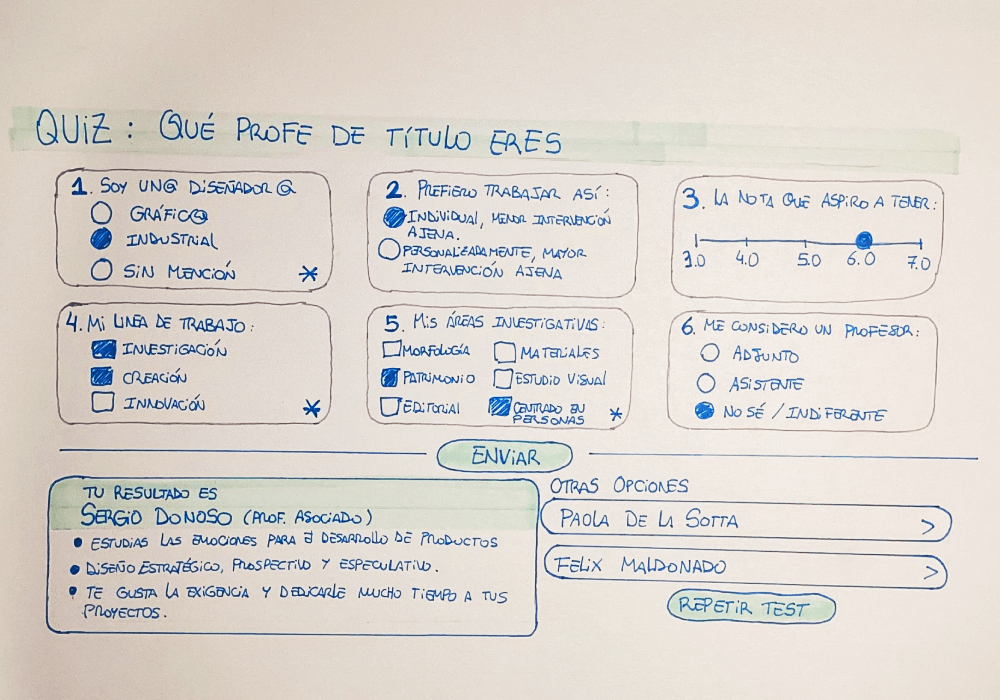 QUIZ: QUÉ PROFE DE TÍTULO ERES
1. SOY UN@ DISEÑADOR@
GRÁFIC@
INDUSTRIAL
SIN MENCIÓN *
2. PREFIERO TRABAJAR ASÍ:
INDIVIDUAL, MENOR INTERVENCIÓN
AJENA.
PERSONALIZADAMENTE, MAYOR
INTERVENCIÓN AJENA
3. LA NOTA QUE ASPIRO A TENER:
3.0 4.0 5.0 6.0 7.0
4. MI LINEA DE TRABAJO:
INVESTIGACIÓN
CREACIÓN
INNOVACIÓN *
5. MIS ÁREAS INVESTIGATIVAS:
MORFOLOGÍA MATERIALES
PATRIMONIO ESTUDIO VISUAL
EDITORIAL CENTRADO EN
PERSONAS *
6. ME CONSIDERO UN PROFESOR:
ADJUNTO
ASISTENTE
NO SÉ / INDIFERENTE
ENVIAR
TU RESULTADO ES
SERGIO DONOSO (PROF. ASOCIADO)
• ESTUDIAS LAS EMOCIONES PARA EL DESARROLLO DE PRODUCTOS
• DISEÑO ESTRATÉGICO, PROSPECTIVO Y ESPECULATIVO.
• TE GUSTA LA EXIGENCIA Y DEDICARLE MUCHO TIEMPO A TUS
PROYECTOS.
OTRAS OPCIONES
PAOLA DE LA SOTTA >
FELIX MALDONADO >
REPETIR TEST